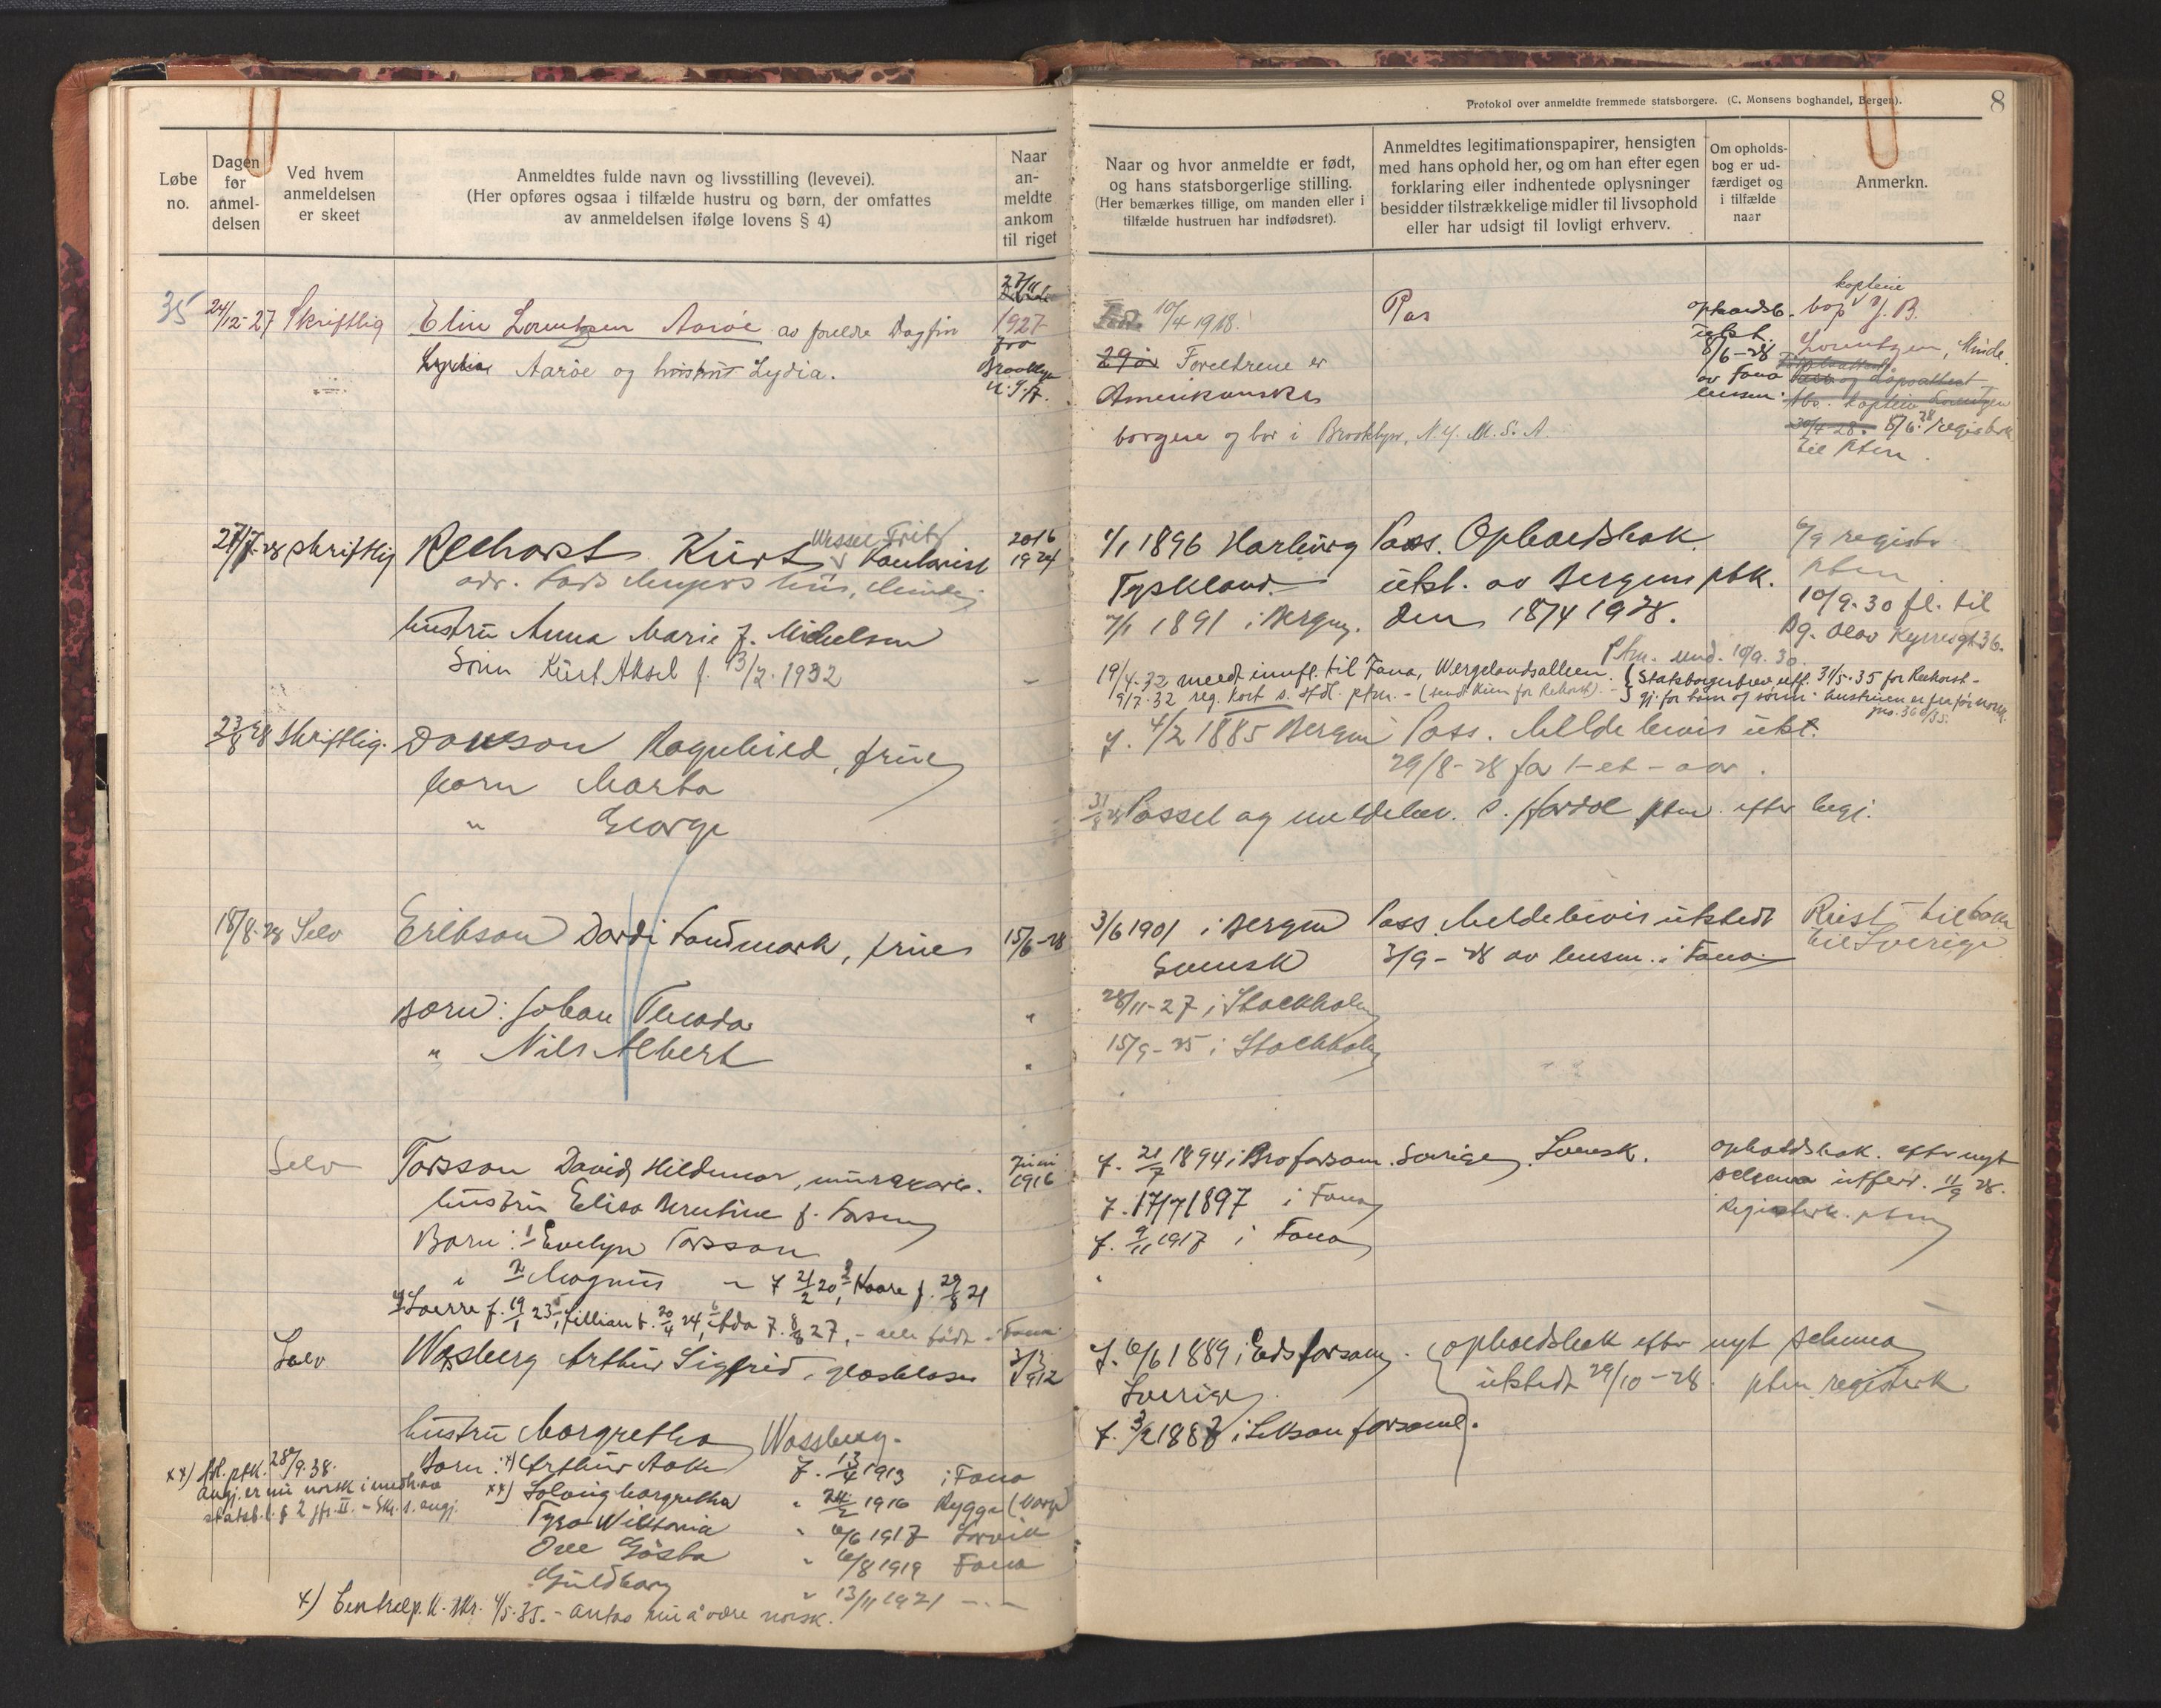 Protokol over anmeldte fremmede statsborgere. (C. Monsens boghandel, Bergen).
8
Løbe no.
Dagen for anmel- delsen
Ved hvem anmeldelsen er skeet
Anmeldtes fulde navn og livsstilling (levevei).
(Her opføres ogsaa i tilfælde hustru og børn, der omfattes
av anmeldelsen ifølge lovens § 4)
Naar an- meldte ankom til riget
Naar og hvor anmeldte er født,
og hans statsborgerlige stilling.
(Her bemærkes tillige, om manden eller i
tilfælde hustruen har indfødsret).
Anmeldtes legitimationspapirer, hensigten
med hans ophold her, og om han efter egen
forklaring eller indhentede oplysninger
besidder tilstrækkelige midler til livsophold
eller har udsigt til lovligt erhverv.
Om opholds- bog er ud- færdiget og i tilfælde naar
Anmerkn.
35 24/12-27 Skriftlig Elin Lorentzen Aarøe av foreldre Dagfin
Aarøe og hustru Lydia.
27/11 1927 fra Brooklyn U.S.A.
10/4 1918.
29 år Foreldrene er
Amerikanske
borgere og bor i Brooklyn, N.Y. U.S.A.
Pas
opholdsb. utst. 8/6-28 av Fana lensm.
kapteine
Lorentzen, Minde.
8/6 28 registerk
til ptm.
27/7-28 skriftlig Reehorst Kurt Wessel Fritz kontorist 20/6 1924
adr. Lars Meyers hus, Minde
hustru Anna Marie f. Michelsen
Sønn Kurt Aksel f. 13/2.1932
1/1 1896 Harburg
Tyskland.
7/1 1891 i Bergen.
Pass. Opholdsbok.
utst. av Bergens ptk.
den 18/4 1928.
6/9 registr
ptm
10/9-30 fl. til
Bg. Olav Kyrresgt 36.
Ptm. und. 10/9.30.
19/4-32 meldt innfl. til Fana, Wergelandsalleen.
9/7.32 reg. kort s. ptm. - (send kun for Rehorst). -
Statsborgerbrev utf. 31/5-35 for Reehorst -
gj. for ham og sønn. hustruen er før norsk.
jno. 360/35.
23/8 28 Skriftlig. Dawson Ragnhild, frue
barn Marta
" George
f. 4/2 1885 Bergen
Pass. Meldebevis utst.
29/8-28 for 1-et-aar.
31/8 28 Passet og meldebev. s. ptm. efter begj.
18/8-28 Selv Erikson Dordi Landmark, frue 15/6-28
Børn: Johan Teodor "
" Nils Albert "
3/6 1901 i Bergen
Svensk
28/11-27 i Stockholm
15/9-25 i Stockholm
Pass. Meldebevis utstedt
3/9-28 av lensm. i Fana.
Reist tilbake
til Sverige
Selv Torsson David Hildemar, murerarb. Juni 1916
hustru Elisa Berentine f. Larsen
Barn: 1 Evelyn Torsson
" 2 Magnus ~ f 21/2 20, 3 Kaare f. 29/8 21
4 Sverre f. 19/1 23, 5 Lillian f. 20/4 24, 6 Ada f. 8/8 27, - alle født i Fana.
f. 21/7 1894 i Bro forsam. Sverige. Svensk.
f. 17/7 1897 i Fana
f. 9/11 1917 i Fana
opholdsbok. efter nyt
schema utferd. 11/9 28.
Registerk. ptm
Selv Wasberg Arthur Sigfrid, glasblaser 3/3 1912
hustru Margretha Wassberg.
Barn: x) Arthur Aake f. 13/4 1913 i Fana
xx) Solveig Margretha " 24/2 1916 Rygge (Norge)
Tyra Wiktoria " 6/6 1917 Larvik
Ove Gösta " 6/8 1919 Fana
Guldborg " 13/11 1921 -.-
f. 6/6 1889 i Eds forsam.
Sverige.
f. 3/2 1887 i forsaml.
opholdsbok efter nyt schema
utstedt 29/10-28. ptm registerk
xx) ptk. 28/9.38.
angj. er nu norsk i medh. av
statsb.l. § 2 jfr. II. - Skr. s. angj.
x) Centralp. k. skr. 4/5-35. - antas nu å være norsk.